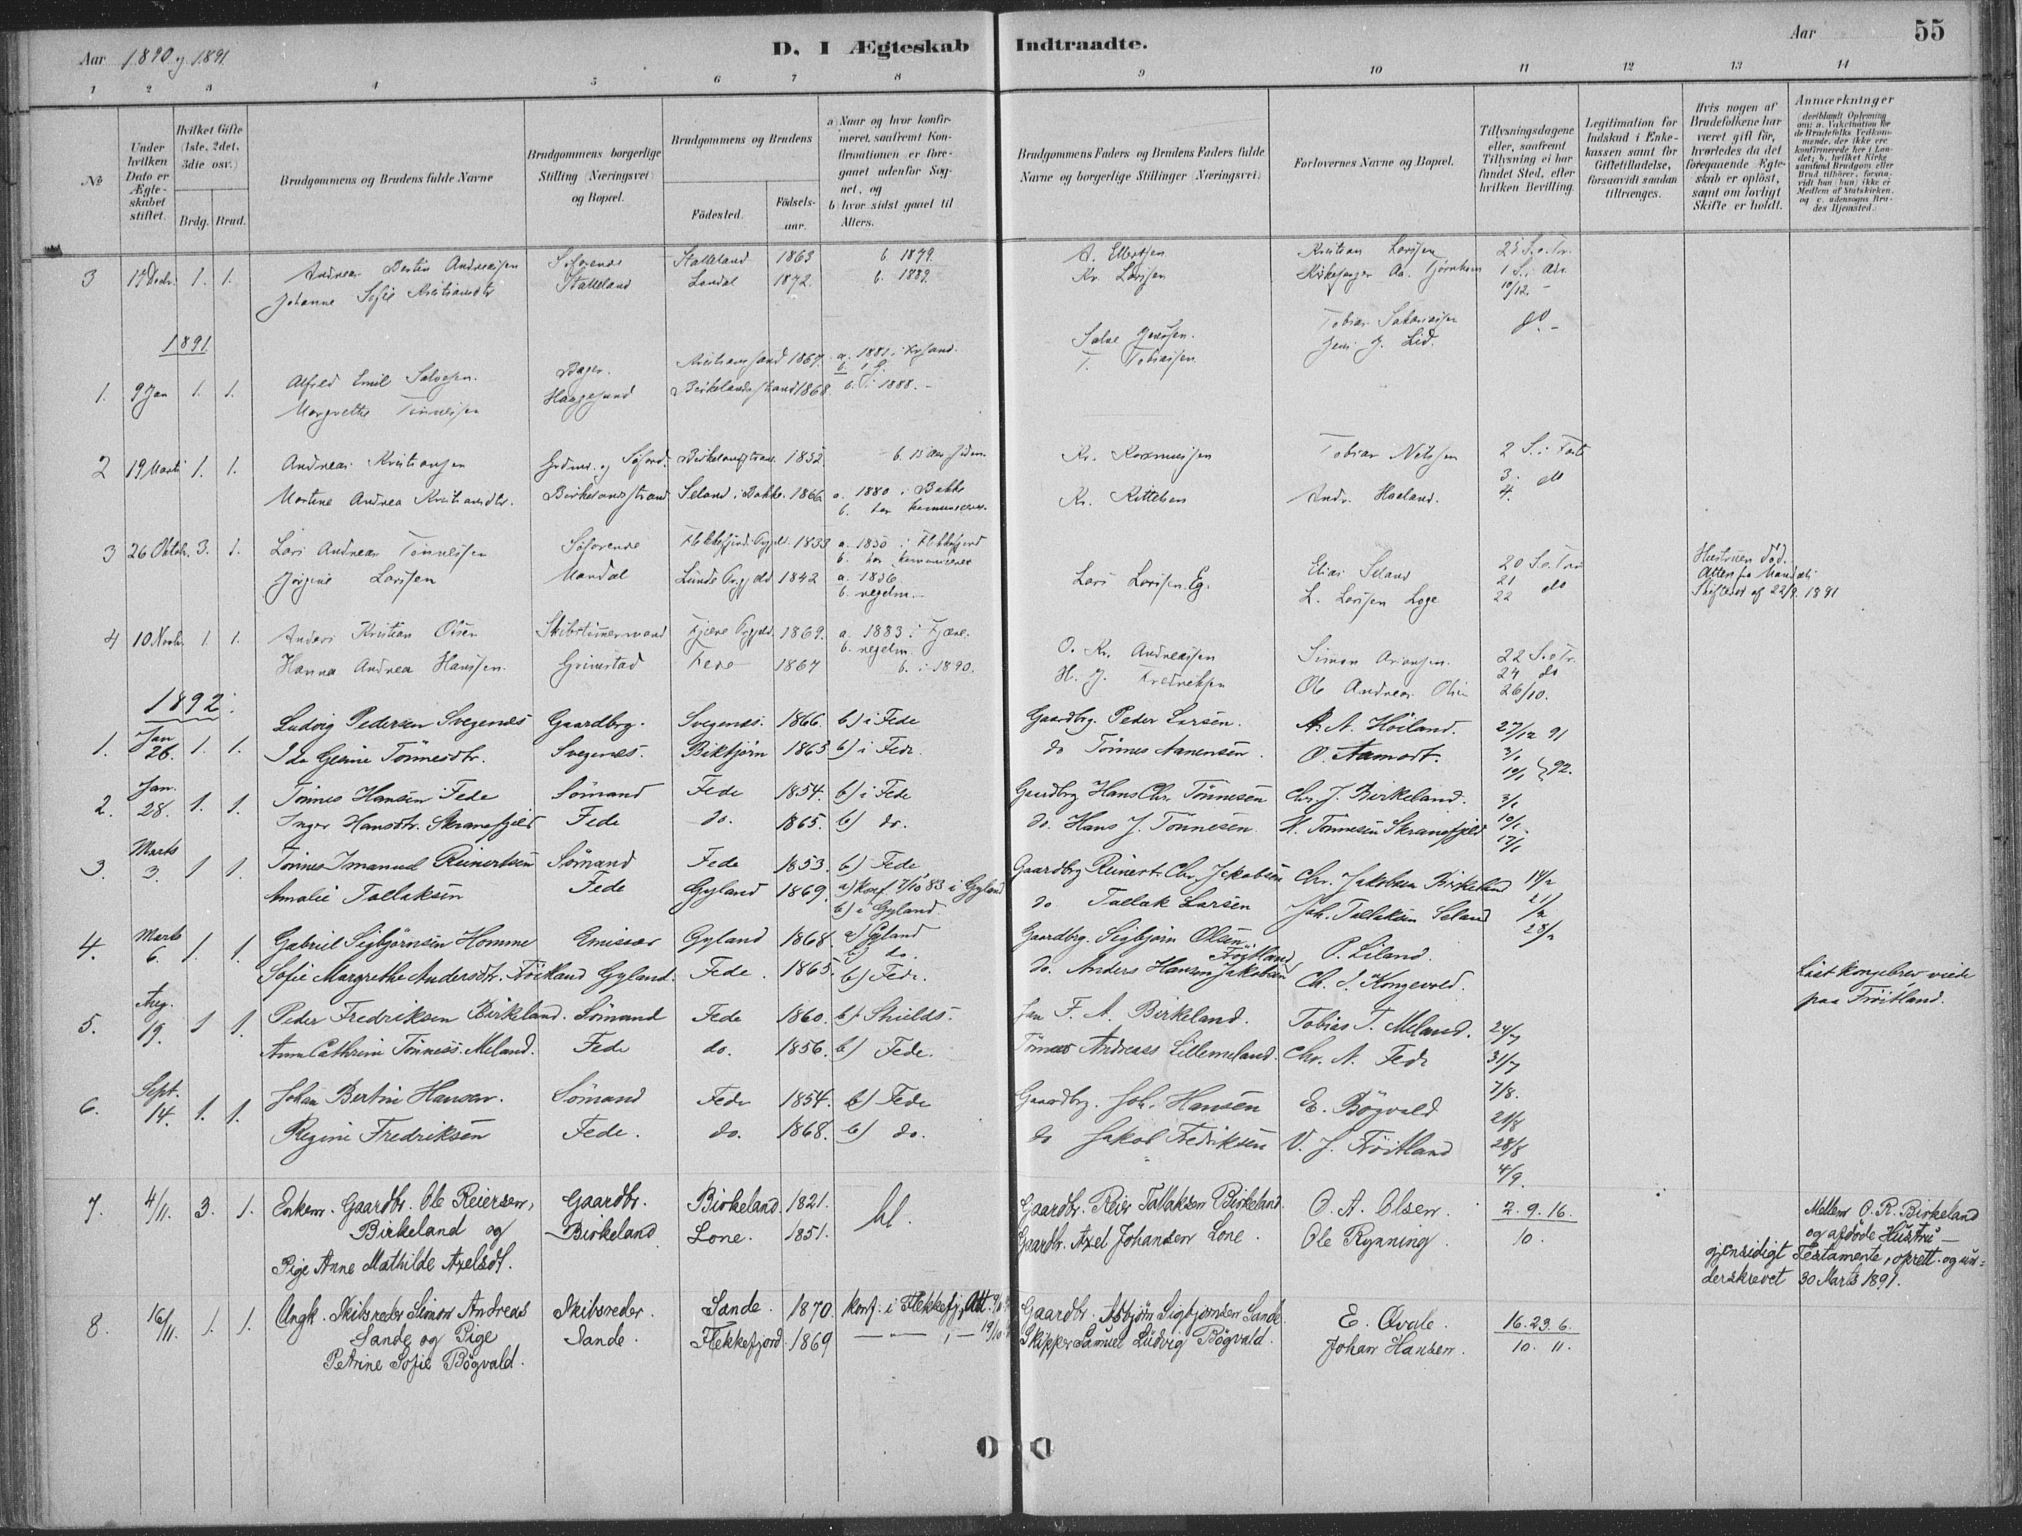 Aar 1890 og 1891
D. I Ægteskab Indtraadte.
Aar
55
1 2 3 4 5 6 7 8 9 10 11 12 13 14
No
Under hvilken Dato er Ægteskabet stiftet.
Hvilket Gifte (1ste, 2det, 3die osv.)
Brdg. Brud.
Brudgommens og Brudens fulde Navne
Brudgommens borgerlige Stilling (Næringsvei) og Bopæl.
Brudgommens og Brudens
Födested.
Födsels-aar.
a) Naar og hvor konfirmeret, saafremt Konfirmationen er foregaaet udenfor Sognet, og
b) hvor sidst gaaet til Alters.
Brudgommens Faders og Brudens Faders fulde Navne og borgerlige Stillinger (Næringsvei)
Forlovernes Navne og Bopæl.
Tillysningsdagene eller, saafremt Tillysning ei har fundet Sted, efter hvilken Bevilling.
Legitimation for Indskud i Enkekassen samt for Giftetilladelse, forsaavidt saadan tiltrænges.
Hvis nogen af Brudefolkene har været gift før, hvorledes da det foregaaende Ægteskab er oplöst, samt om lovligt Skifte er holdt.
Anmærkninger
3 17 Decbr. 1. 1. Andreas Bertin Andreassen Söfarende Stalleland 1863 b. 1879. A. Ellertsen Kristian Larsen 23 S.e.Tr.
Johanne Sofie Kristiansdtr Stalleland Londal 1872. b. 1889. Kr. Larsen Kirkesanger Aa. Tjörnhom 1 S. i Adv.
10/12. -
1891
1. 9 Jan 1. 1. Alfred Emil Salvesen. Bager. Kristianssand 1867. a. 1881. i Krsand. Salve Jensen. Tobias Sakariasen do. -
Margrethe Tönnessen Haugesund Birkelandsstrand 1868 b. i 1888. - T. Tobiassen Jens J. Lid.
2 19 Marts 1. 1. Andreas Kristiansen Grdmd. og Söfard. Birkelandsstrand 1852. b. 15 Aar siden. Kr. Rasmussen Tobias Nilssen 2 S. i Faste
Martine Andrea Kristiansdtr. Birkelandsstrand Seland i Bakke 1866 a. 1880 i Bakke Kr. Kittelsen Andr. Haaland. 3. do
b. har kommuniceret. 4.
3 26 Oktobr. 3. 1. Lars Andreas Tönnessen Söfarende Flekkefjords Prgjeld. 1833 a. 1850 i Flekkefjord Elias Seland 20 S.e.Trin Hustruen död.
Jörgine Larsen Mandal Lunds Prgjeld 1842 a. 1856. Lars Larsen Eg. L. Larsen Loge 21 do Attest fra Mandals
b. regelm. 22 Skifteret af 22/9. 1891
4 10 Novbr. 1. 1. Anders Kristian Olsen Skibstimmermand Fjære Prgjeld. 1869. a. 1883 i Fjære. O. Kr. Andreassen Simon Arionsen. 22 S.e.Tr.
b. regelm. 24 do
Hanna Andrea Hanssen. Grimstad Fede 1867 b. i 1890. H. J. Fredriksen Ole Andreas Olsen 26/10.
1892.
1. Jan 26. 1. 1. Ludvig Pedersen Svegenes Gaardbrg. Svegenes. 1866. b) i Fede Gaardbrg. Peder Larsen. A. A. Höiland. 27/12 91
Ida Gurine Tönnesdtr. Svegenes. Biktjörn 1863 b) i Fede. do Tönnes Aanensen. O. Aamodt. 3/1
10/1 } 92.
2. Jan. 28. 1. 1. Tönnes Hansen Fede Sömand Fede 1854. b) i Fede Gaardbrg Hans Chr. Tönnesen Chr. J. Birkeland. 3/1
Inger Hansdtr. Skranefjeld Fede do. 1865. b) do. do. Hans J. Tönnesen. H. Tönnesen Skranefjeld 10/1
17/1
3. Marts 3. 1 1. Tönnes Imanuel Reinertsen Sömand Fede 1853. b) Fede Gaardbrg Reinert Chr. Jakobsen Chr. Jakobsen Birkeland 14/2
Amalie Tallaksen Fede Gyland 1869. a) konf. 7/10 83 i Gyland do Tallak Larsen Joh. Tallaksen Seland 21/2
b) i Gyland. 28/2
4. Marts 6. 1. 1. Gabriel Sigbjörnsen Homme Emisær Gyland 1868. a) Gyland Gaardbrg. Sigbjörn Olsen P. Liland.
b) do. Fröitland
Sofie Margrethe Andersdt. Fröitland Gyland. Fede. 1865. b) Fede. do. Anders Hansen Jakobsen Ch. J. Kongevold. Löst kongebrev viede
paa Fröitland.
5. Aug. 19. 1 1. Peder Fredriksen Birkeland. Sömand Fede 1860. b) Shields. F. A. Birkeland. Tobias T. Meland. 24/7
Anna Cathrine Tönness. Meland. Fede do. 1856. b) Fede. Tönnes Andreass Lillemeland. Chr. A. Fede 31/7
7/8.
6. Sept. 14. 1. 1. Johan Bertin Hansen. Sömand Fede 1854. b) Fede Gaardbrg. Joh. Hansen E. Bögvald 21/8
Regine Fredriksen Fede. do. 1868. b) do. do Jakob Fredriksen V. J. Fröitland 28/8
4/9.
7. 4/11. 3. 1. Enkem. Gaardbr. Ole Reiersen, Gaardbr. Birkeland. 1821. bl. Gaardbr. Reier Tallaksen Birkeland. O. A. Olsen. 2. 9. 16. Mellem O. R. Birkeland
Birkeland og Birkeland Lone. 1851. Gaardbr. Axel Johansen Lone. Ole Rynning. 10. og afdöde Hustru -
Pige Anne Mathilde Axelsdt. gjensidigt Testamente, oprett. og un-
derskrevet 30 Marts 1891.
8. 16/11. 1. 1. Ungk. Skibsreder Simon Andreas Skibsreder. Sande. 1870. Konf. i Flekkefj. Att. Gaardbr. Asbjörn Sigbjörnsen Sande. E. Qvale. 16. 23. 6.
Sande og Pige Sande. Flekkefjord 1869 — — 19/10 Skipper Samuel Ludvig Bögvald. Johan Hansen. 10. 11.
Petrine Sofie Bögvald.